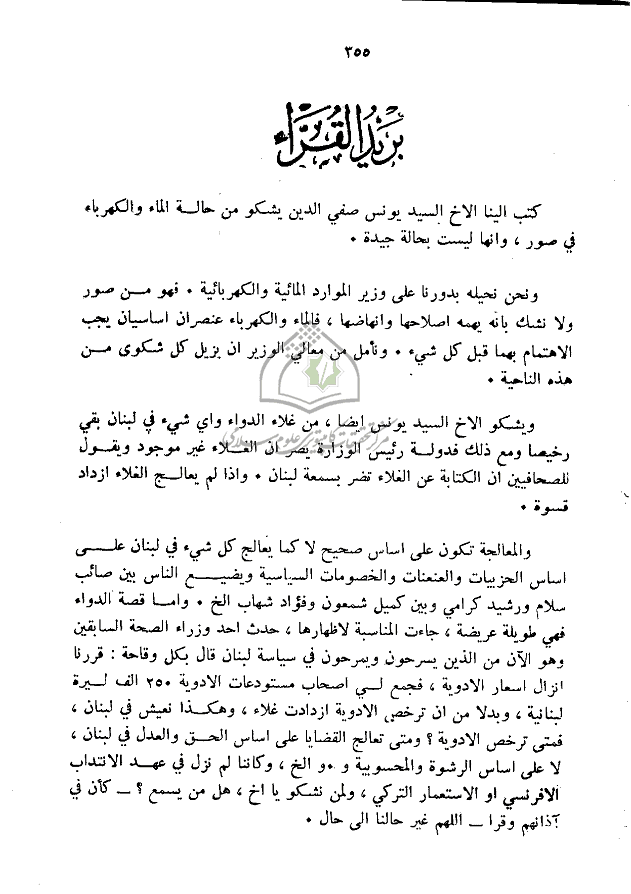 ٣٥٥
بريد القراء
كتب الينا الاخ السيد يونس صفي الدين يشكو من حالة الماء والكهرباء
في صور ، وانها ليست بحالة جيدة ٠
ونحن نحيله بدورنا على وزير الموارد المائية والكهربائية ٠ فهو من صور
ولا نشك بانه يهمه اصلاحها وانهاضها ، فالماء والكهرباء عنصران اساسيان يجب
الاهتمام بهما قبل كل شيء ٠ ونأمل من معالي الوزير ان يزيل كل شكوى من
هذه الناحية ٠
ويشكو الاخ السيد يونس ايضا ، من غلاء الدواء واي شيء في لبنان بقي
رخيصا ومع ذلك فدولة رئيس الوزارة يصر ان الغلاء غير موجود ويقول
للصحافيين ان الكتابة عن الغلاء تضر بسمعة لبنان ٠ واذا لم يعالج الغلاء ازداد
قسوة ٠
والمعالجة تكون على اساس صحيح لا كما يعالج كل شيء في لبنان على
اساس الحزبيات والعنعنات والخصومات السياسية ويضيع الناس بين صائب
سلام ورشيد كرامي وبين كميل شمعون وفؤاد شهاب الخ ٠ واما قصة الدواء
فهي طويلة عريضة ، جاءت المناسبة لاظهارها ، حدث احد وزراء الصحة السابقين
وهو الآن من الذين يسرحون ويمرحون في سياسة لبنان قال بكل وقاحة : قررنا
انزال اسعار الادوية ، فجمع لي اصحاب مستودعات الادوية ٢٥٠ الف ليرة
لبنانية ، وبدلا من ان ترخص الادوية ازدادت غلاء ، وهكذا نعيش في لبنان ،
فمتى ترخص الادوية ؟ ومتى تعالج القضايا على اساس الحق والعدل في لبنان ،
لا على اساس الرشوة والمحسوبية و ٠و الخ ، وكاننا لم نزل في عهد الانتداب
الافرنسي او الاستعمار التركي ، ولمن نشكو يا اخ ، هل من يسمع ؟ ــ كأن في
آذانهم وقرا ــ اللهم غير حالنا الى حال ٠